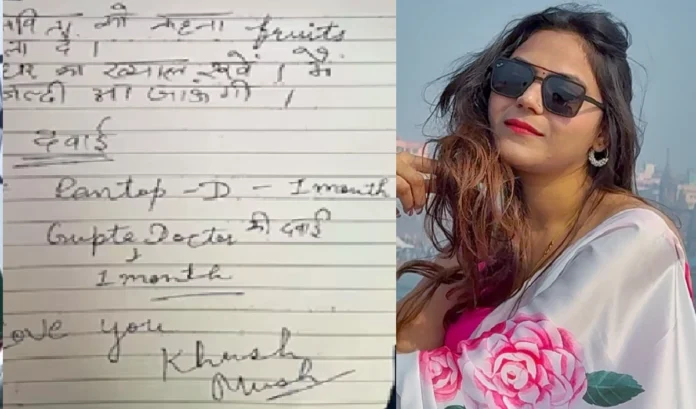 को कहना fruits
ला दे ।
घर का ख्याल रखें । मैं
जल्दी आ जाऊंगी ।
दवाई
Pantop - D. - 1 month
Gupte Doctor की दवाई
1 month
love you
Khush